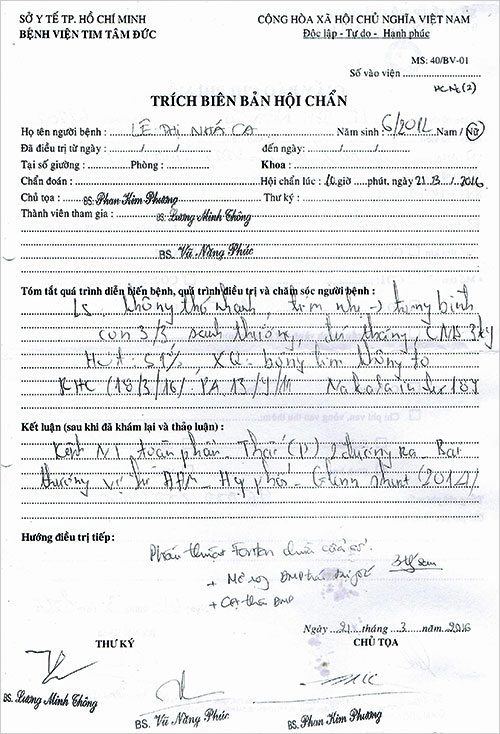 SỞ Y TẾ TP. HỒ CHÍ MINH
BỆNH VIỆN TIM TÂM ĐỨC
CỘNG HÒA XÃ HỘI CHỦ NGHĨA VIỆT NAM
Độc lập - Tự do - Hạnh phúc
MS: 40/BV-01
Số vào viện
TRÍCH BIÊN BẢN HỘI CHẨN
Họ tên người bệnh : LÊ PHI NHÃ CA Năm sinh : 6/2012 Nam / Nữ
Đã điều trị từ ngày : ....../....../...... đến ngày: ....../....../......
Tại số giường : Phòng : Khoa :
Chẩn đoán : Hội chẩn lúc : 10 giờ phút, ngày 21/3/2016
Chủ tọa : BS. Phan Kim Phương Thư ký :
Thành viên tham gia : BS. Lương Minh Thông
BS. Vũ Năng Phúc
Tóm tắt quá trình diễn biến bệnh, quá trình điều trị và chăm sóc người bệnh :
Ls không thở nhanh, tím nhẹ -> trung bình
con 3/3 sanh thường, đủ tháng, CNLS 3kg
Hct : 51%, XQ - bóng tim không to
KHC (18/3/16) : PA 13/4/11
Kết luận (sau khi đã khám lại và thảo luận) :
toàn phần. Thất (P) 2 đường ra - Bất
thường vị trí - Hẹp phổi - Glenn shunt (2014)
Hướng điều trị tiếp:
Phẫu thuật Fontan chưa cửa sổ.
+ Mở rộng ĐMP
+ ĐMP
Ngày 21 tháng 3 năm 2016
THƯ KÝ
CHỦ TỌA
BS. Lương Minh Thông
BS. Vũ Năng Phúc
BS. Phan Kim Phương